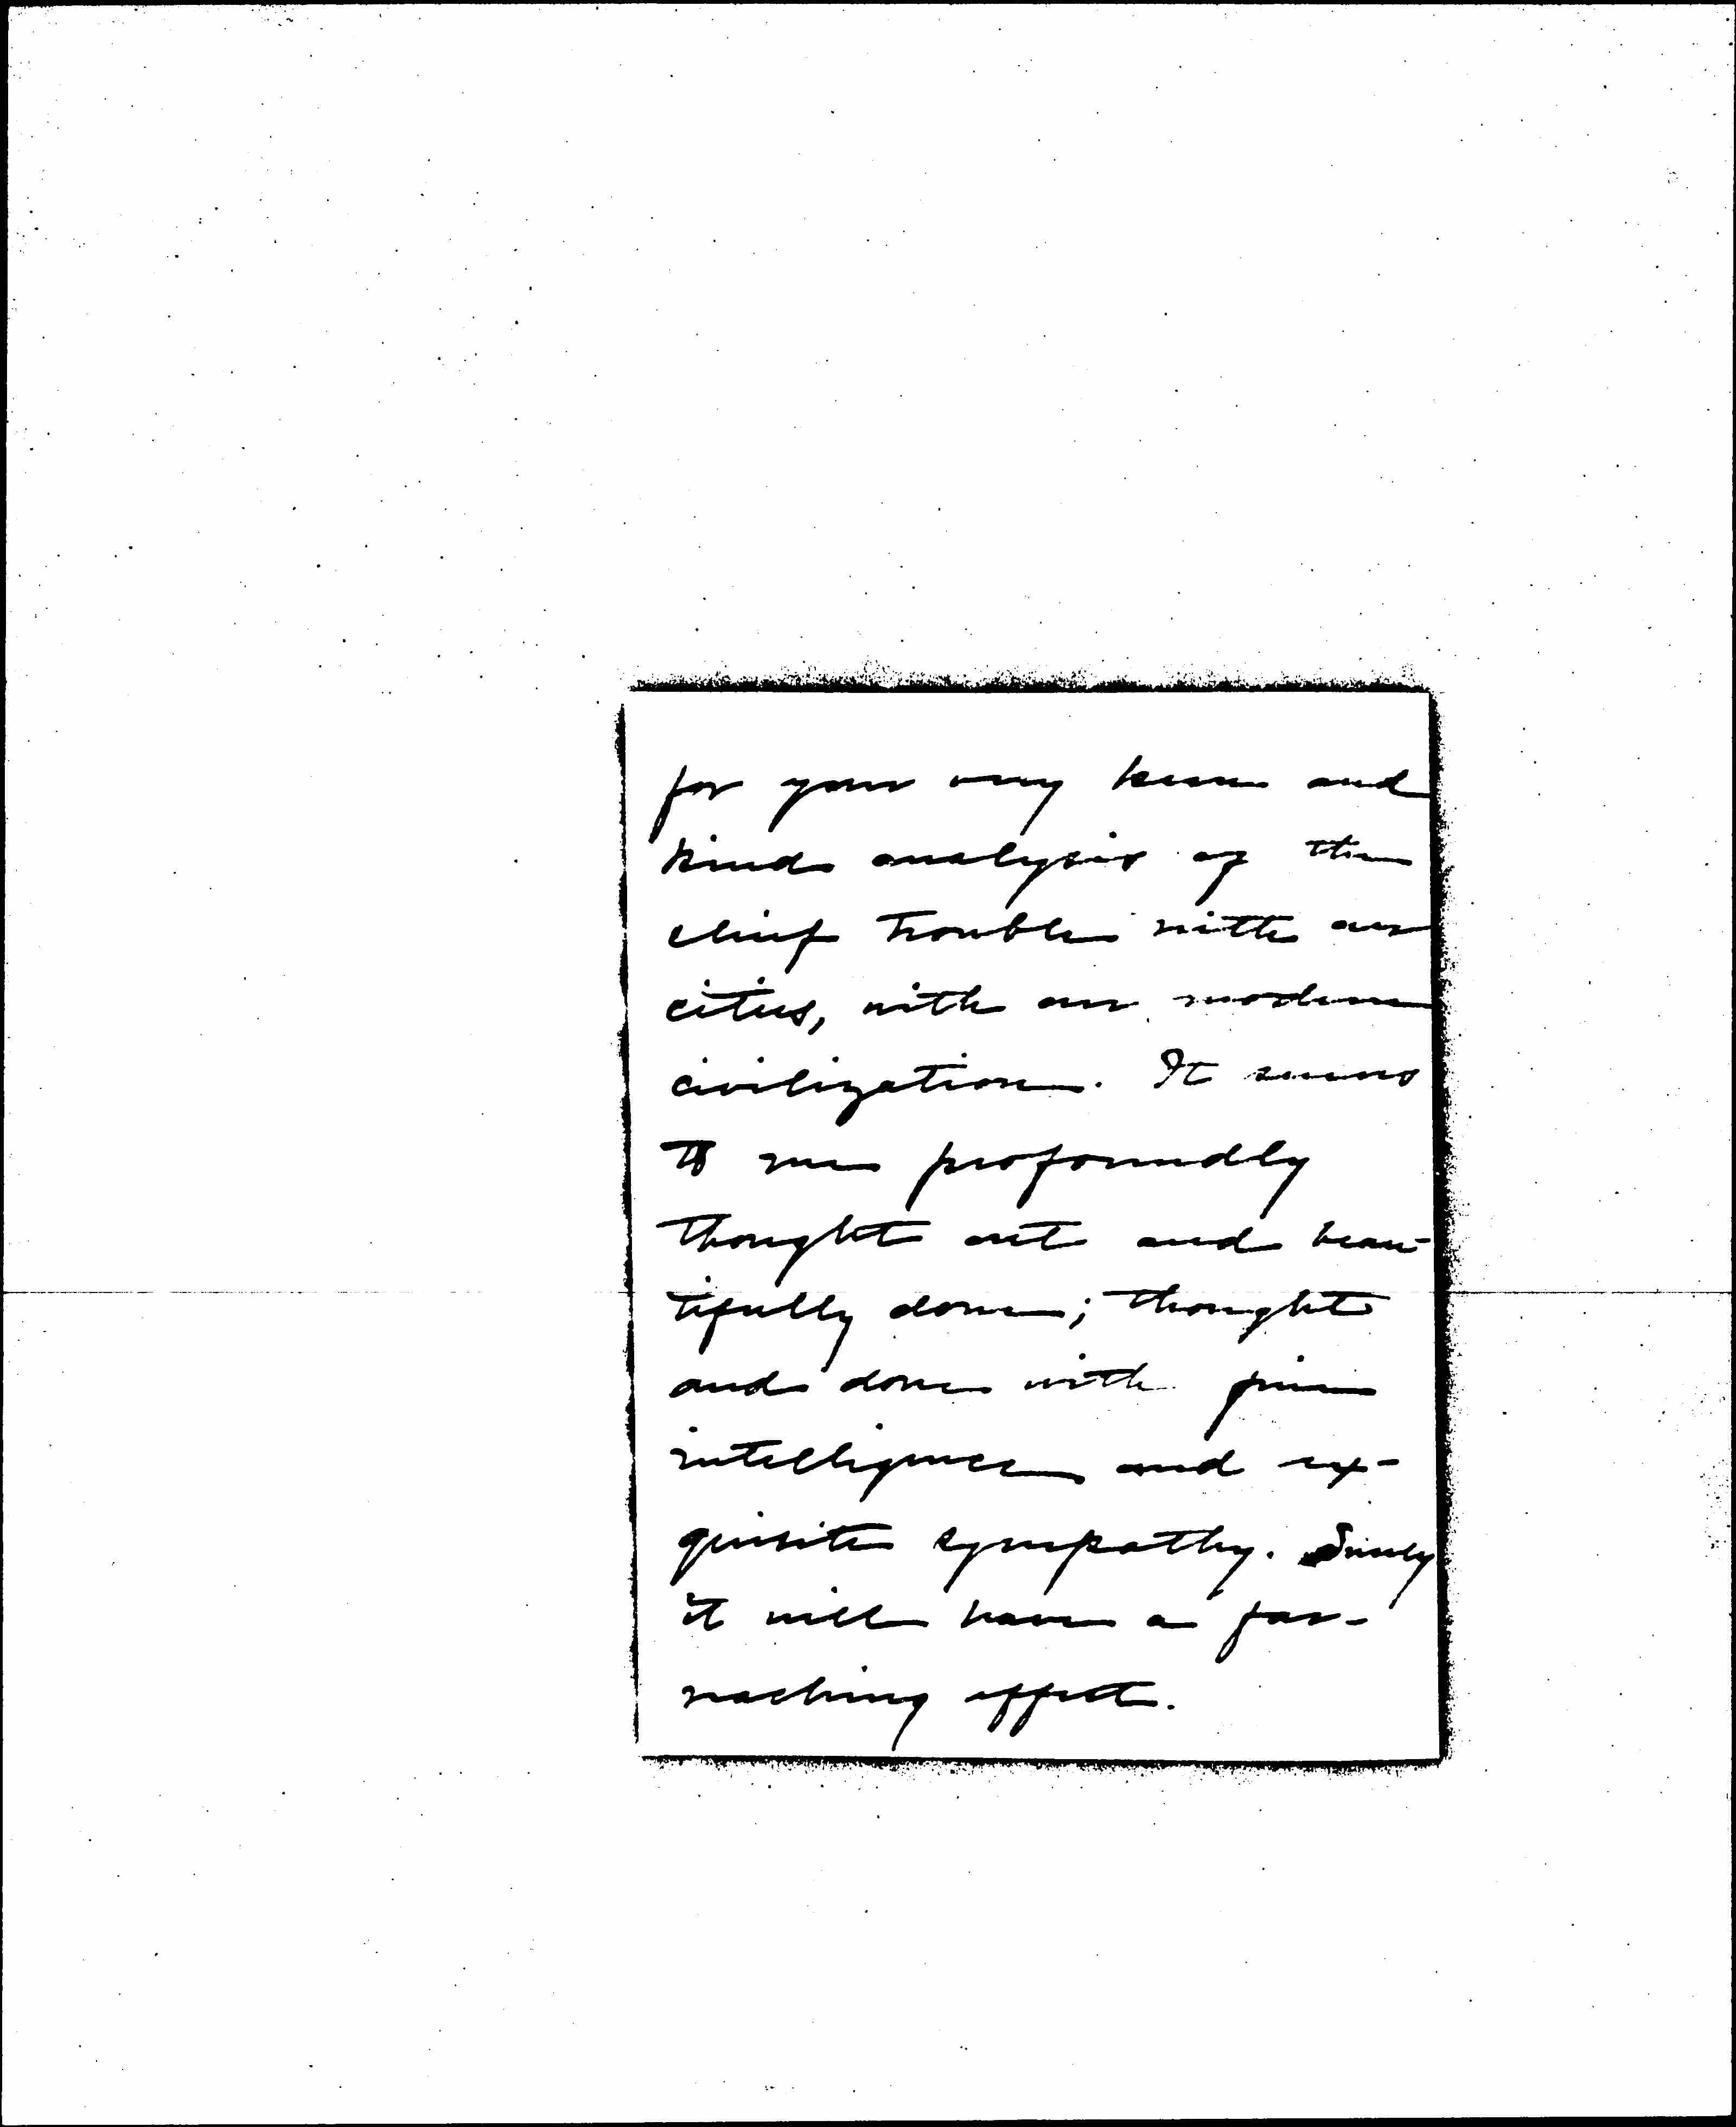 for your very keen and
kind analysis of the
chief trouble with our
cities, with our modern
civilization. It seems
to me profoundly
thought out and beau-
tifully done; thought
and done with fine
intelligence and ex-
quisite sympathy. Surely
it will have a far-
reaching effect.